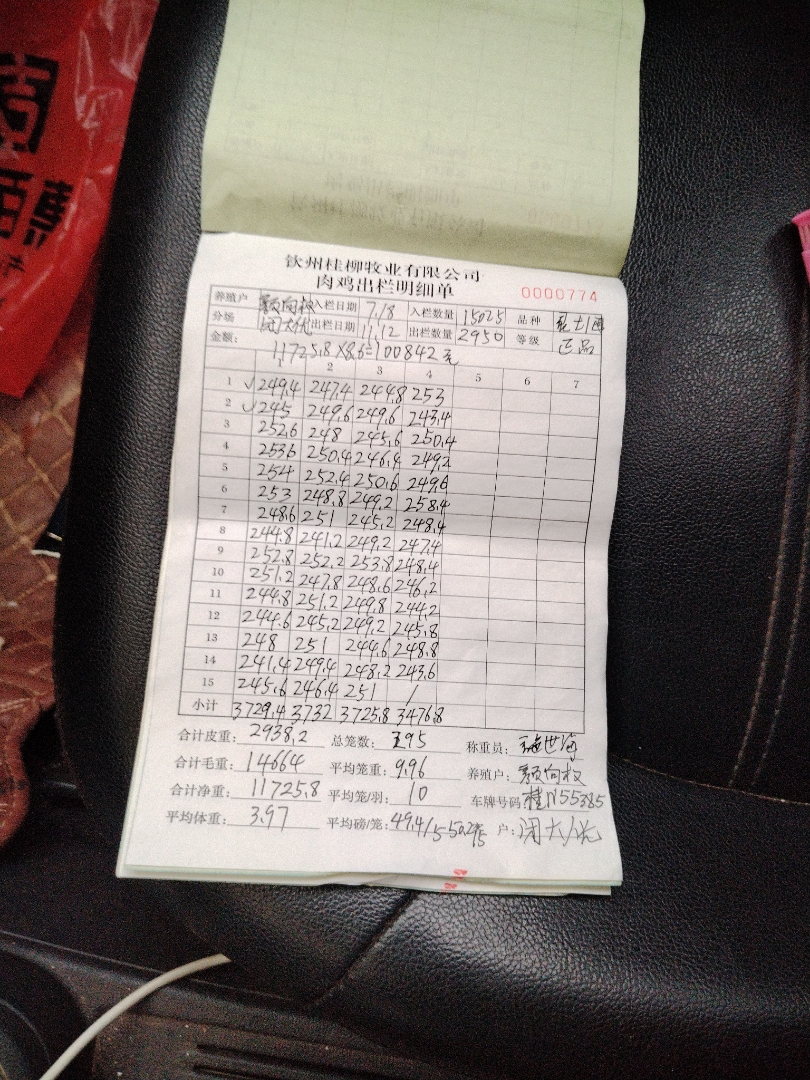 钦州桂柳牧业有限公司
肉鸡出栏明细单
0000774
养殖户 入栏日期 7.18 入栏数量 15025 品种
分场 闭大优 出栏日期 11.12 出栏数量 2950 等级 正品
金额: 11725.8×8.6=100842元
1 2 3 4 5 6 7
1 ✓249.4 247.4 244.8 253
2 ✓245 249.6 249.6 243.4
3 252.6 248 245.6 250.4
4 253.6 250.4 246.4 249.2
5 254 252.4 250.6 249.6
6 253 248.8 249.2 258.4
7 248.6 251 245.2 248.4
8 244.8 241.2 249.2 247.4
9 252.8 252.2 253.8 248.4
10 251.2 247.8 248.6 246.2
11 244.8 251.2 249.8 244.2
12 244.6 245.2 249.2 245.8
13 248 251 244.6 248.8
14 241.4 249.4 248.2 243.6
15 245.6 246.4 251 /
小计 3729.4 3732 3725.8 3476.8
合计皮重: 2938.2 总笼数: 295 称重员:
合计毛重: 14664 平均笼重: 9.96 养殖户:
合计净重: 11725.8 平均笼/羽: 10 车牌号码: 桂N55385
平均体重: 3.97 平均磅/笼: 49.4/5 户: